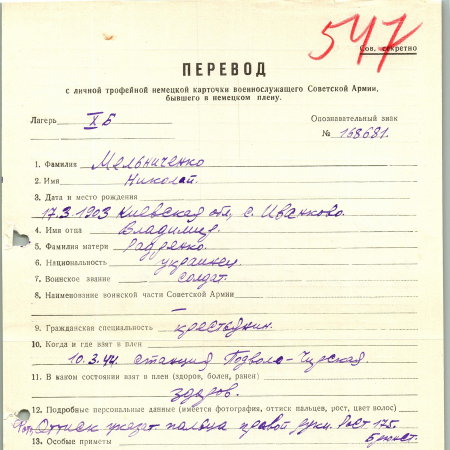 547
Сов. секретно
ПЕРЕВОД
с личной трофейной немецкой карточки военнослужащего Советской Армии,
бывшего в немецком плену.
Лагерь X Б
Опознавательный знак
№ 168681.
1. Фамилия Мельниченко
2. Имя Николай.
3. Дата и место рождения
17.3.1903 Киевская обл, с. Иванково.
4. Имя отца Владимир.
5. Фамилия матери
6. Национальность украинец
7. Воинское звание солдат.
8. Наименование воинской части Советской Армии
—
9. Гражданская специальность крестьянин.
10. Когда и где взят в плен
10.3.44. станция
11. В каком состоянии взят в плен (здоров, болен, ранен)
здоров.
12. Подробные персональные данные (имеется фотография, оттиск пальцев, рост, цвет волос)
Оттиск указат. пальца правой руки. Рост 175.
13. Особые приметы